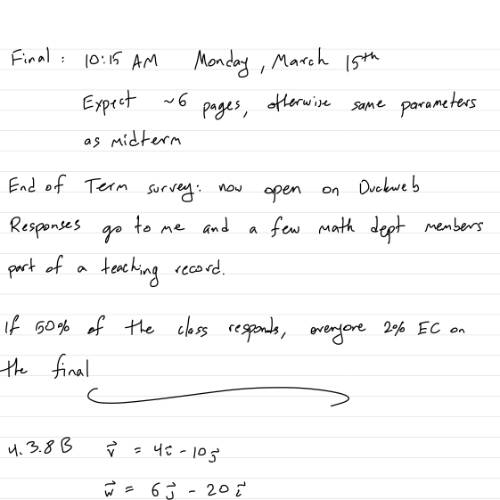 Final: 10:15 AM Monday, March 15th
Expect ~6 pages, otherwise same parameters
as midterm
End of Term survey: now open on Duckweb
Responses go to me and a few math dept members
part of a teaching record.
If 50% of the class responds, everyone 2% EC on
the final
4.3.8 B v⃗ = 4i - 10j
w⃗ = 6j - 20i